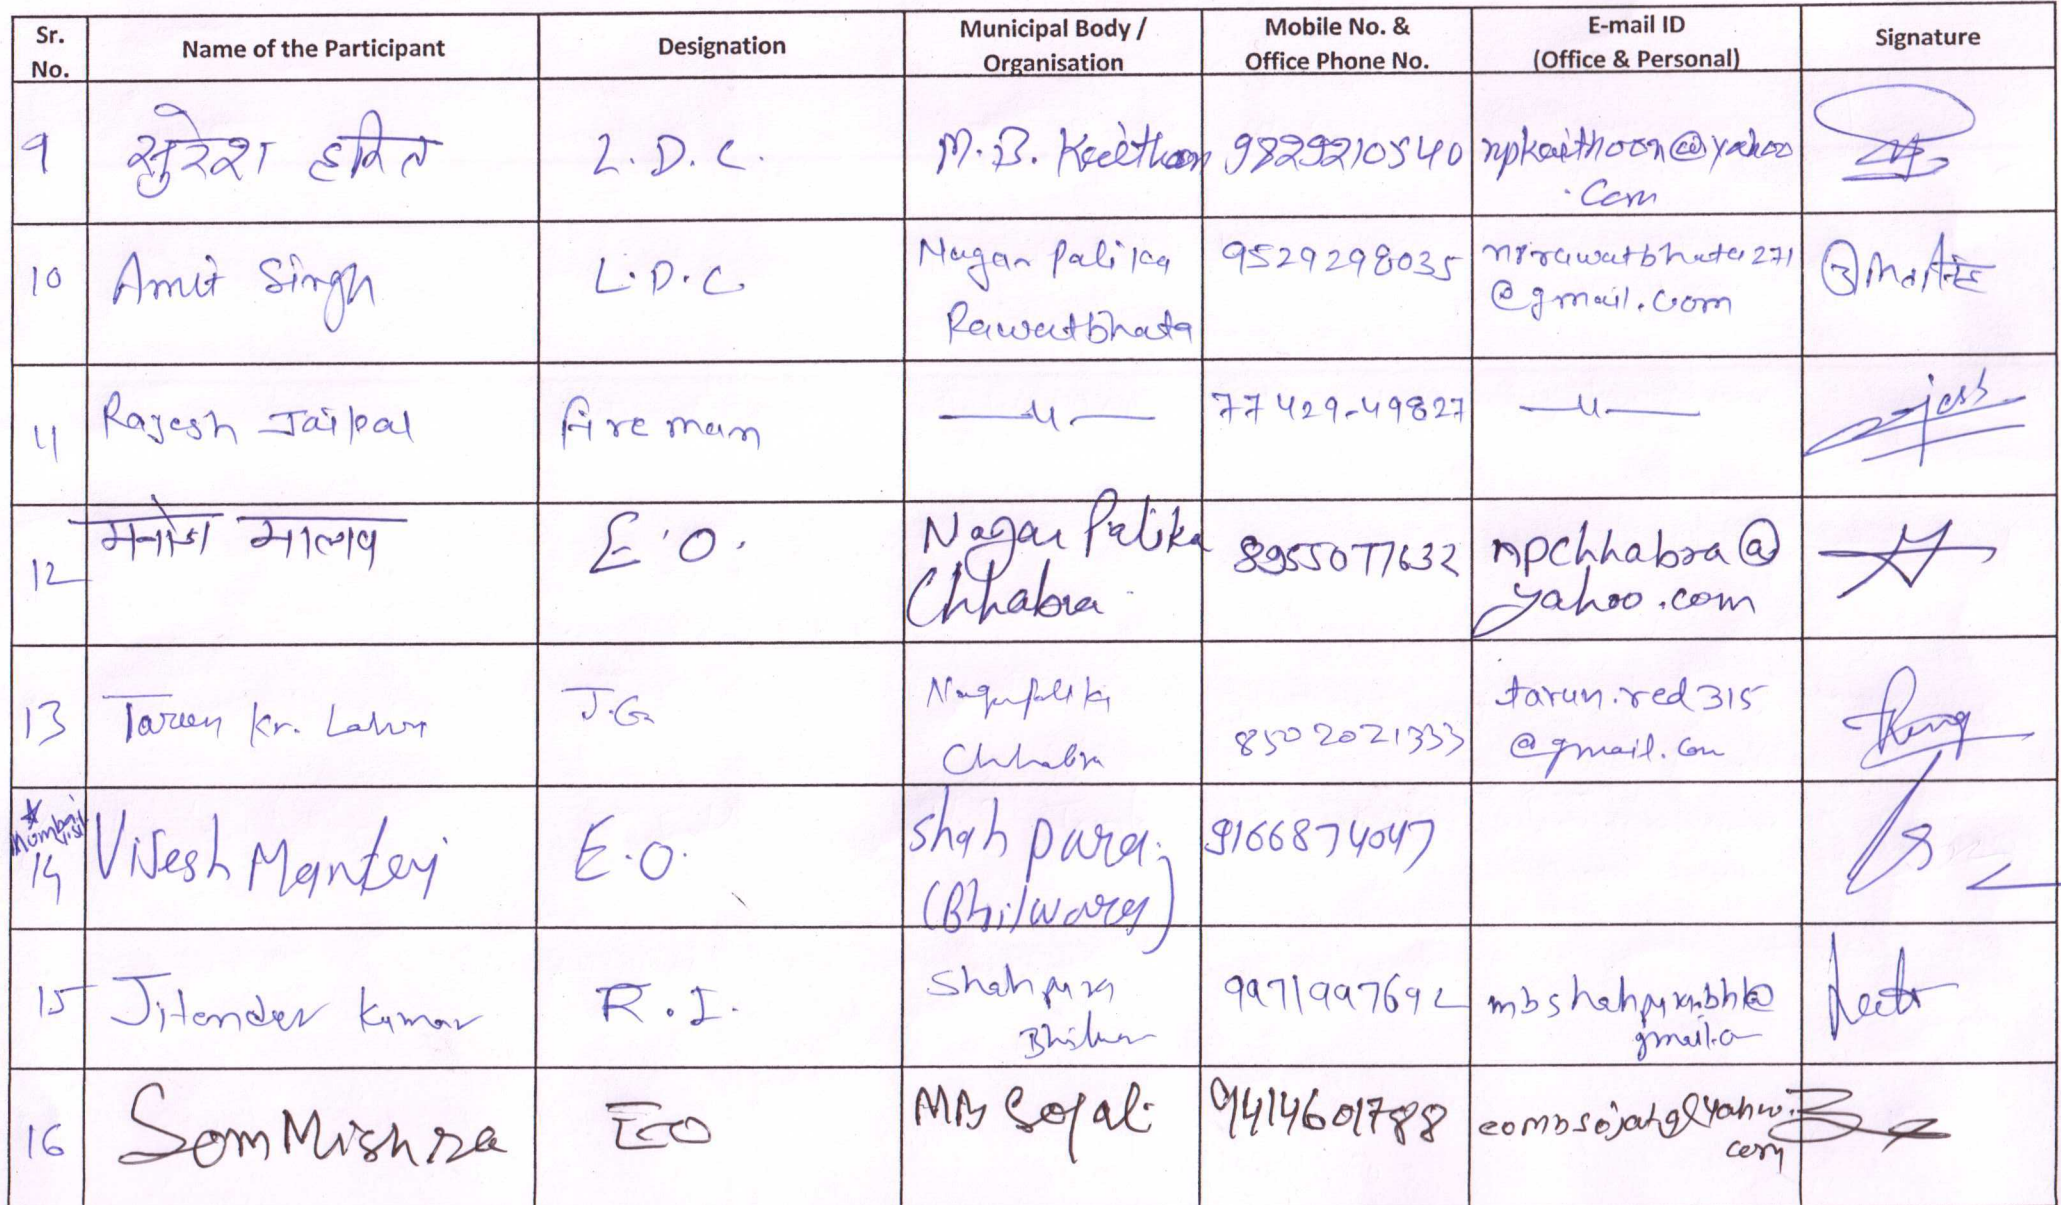 Sr. No. Name of the Participant Designation Municipal Body / Organisation Mobile No. & Office Phone No. E-mail ID (Office & Personal) Signature
9 सुरेश L.D.C. M.B. Kaithoon 9829210540 npkaithoon@yahoo
.Com
10 Amit Singh L.D.C. Nagar Palika 9529298035 nprawatbhata271
Rawatbhata @gmail.com
11 Rajesh Jaipal fireman —〃— 77429-49827 —〃—
12 मनोज मालव E.O. Nagar Palika 8955077632 npchhabra@
Chhabra yahoo.com
13 Tarun Kr. J.G. Nagarpalika 8502021333 tarun.red315
Chhabra @gmail.com
* Mumbai visit
14 Vijesh E.O. Shahpura 9166874047
(Bhilwara)
15 Jitender Kumar R.I. Shahpura 9971997692 mbshahpurabhl@
Bhilwara
16 Som Mishra EO MB Sojat 9414601788 eombsojat@yahoo.
com